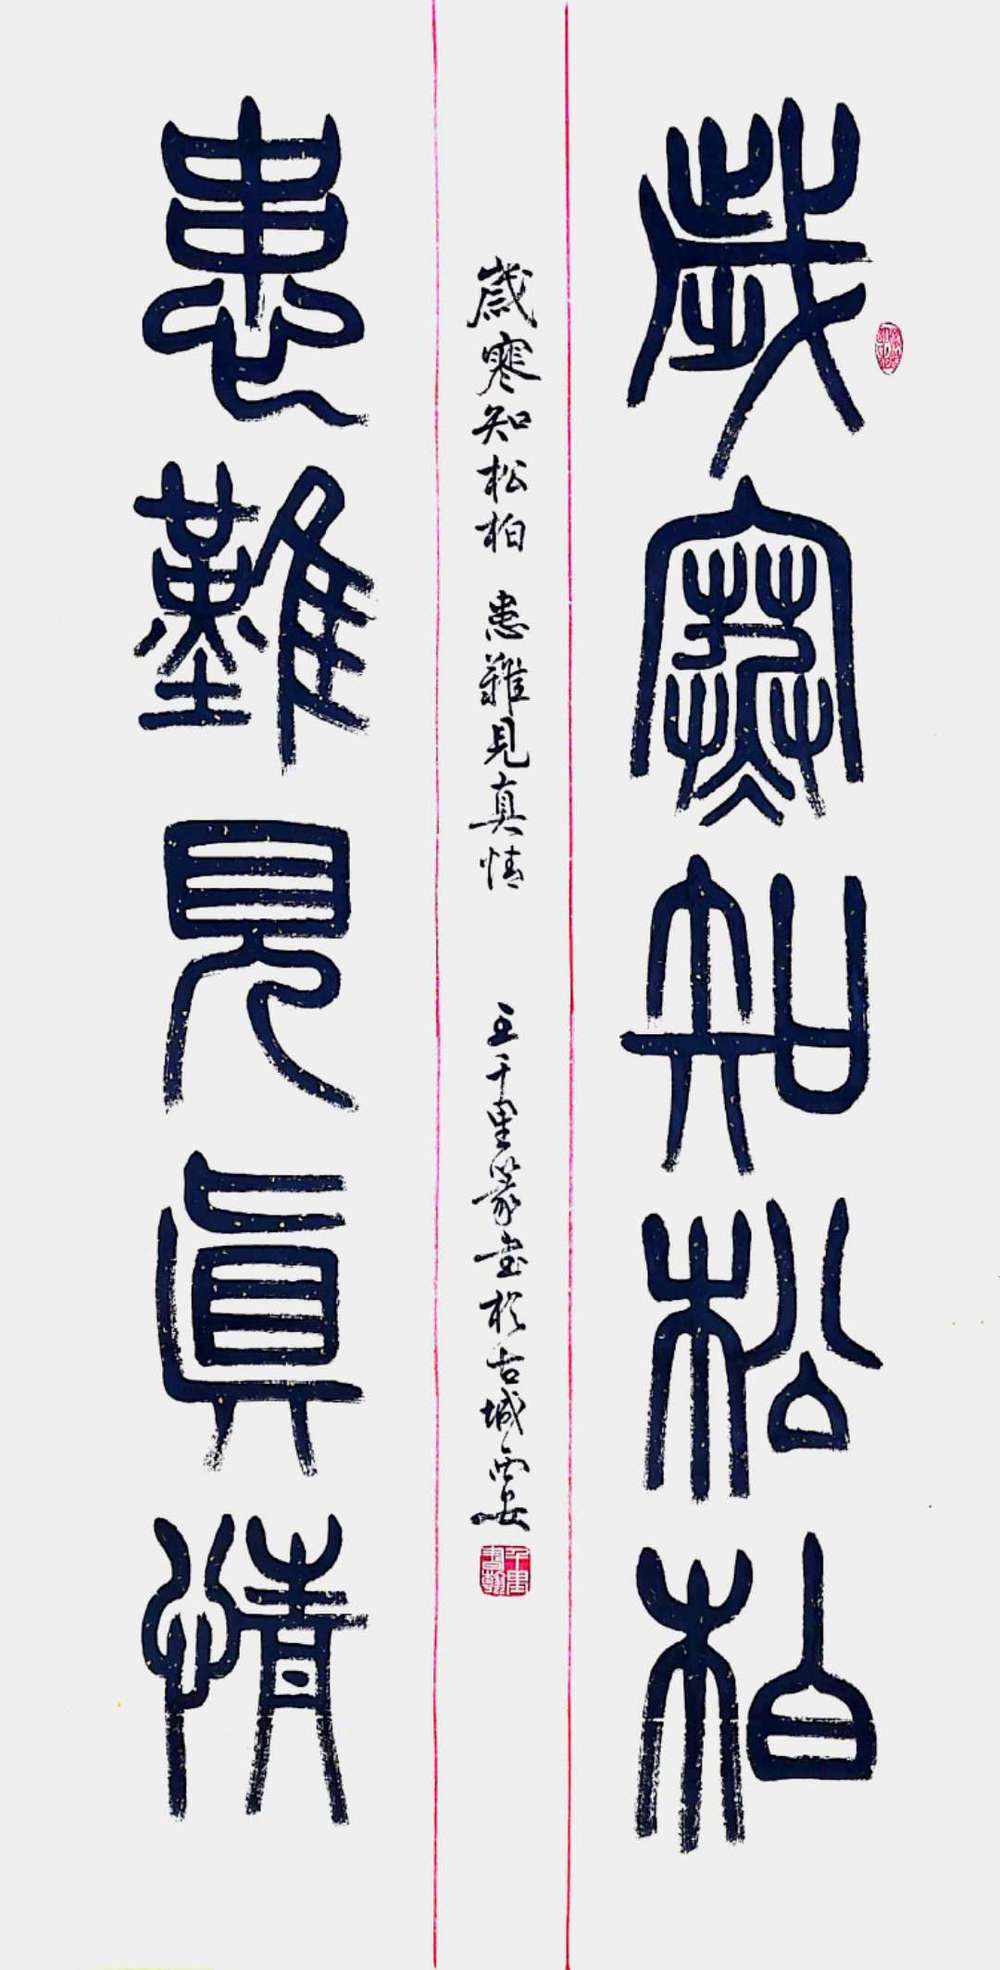 歲寒知松柏
歲寒知松柏 患難見真情 王千里篆書於古城西安
患難見眞情